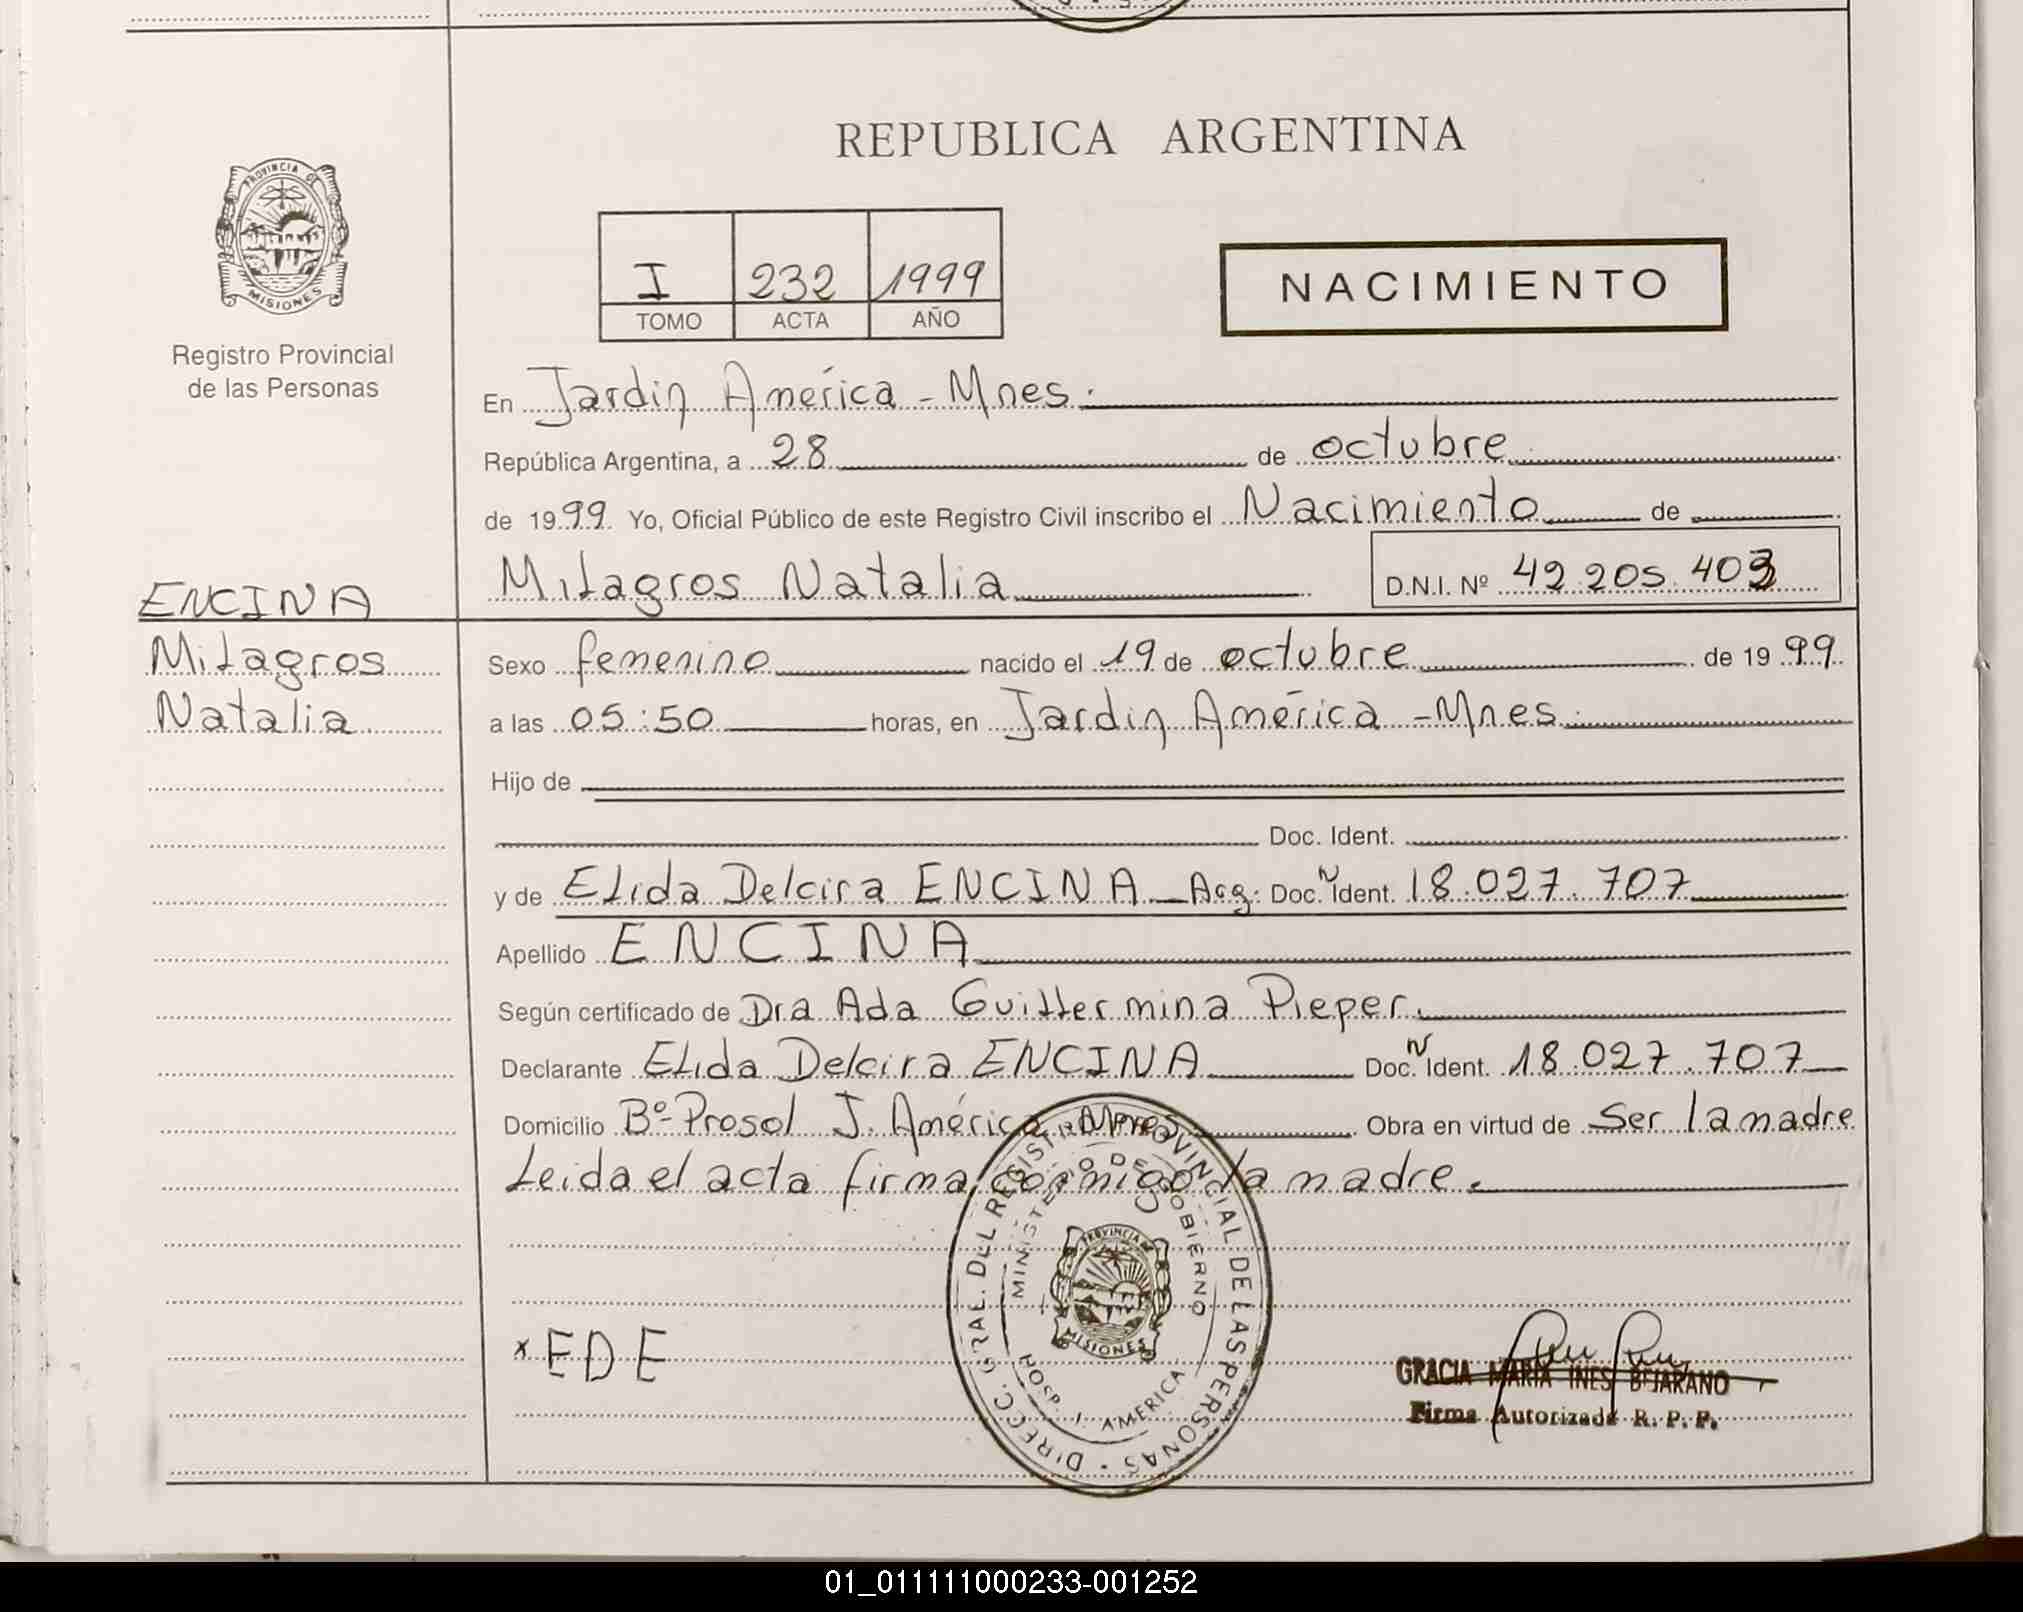 REPUBLICA ARGENTINA
PROVINCIA DE
MISIONES
Registro Provincial
de las Personas
I 232 1999
TOMO ACTA AÑO
NACIMIENTO
En Jardin América - Mnes.
República Argentina, a 28 de octubre
de 1999 Yo, Oficial Público de este Registro Civil inscribo el Nacimiento de
Milagros Natalia D.N.I. Nº 42.205.403
ENCINA
Milagros
Natalia
Sexo femenino nacido el 19 de octubre de 1999
a las 05:50 horas, en Jardin América - Mnes.
Hijo de
Doc. Ident.
y de Elida Delcira ENCINA - Arg. Doc. N Ident. 18.027.707
Apellido ENCINA
Según certificado de Dra Ada Guillermina Pieper.
Declarante Elida Delcira ENCINA Doc. N Ident. 18.027.707
Domicilio Bº Prosol J. América - Mnes Obra en virtud de Ser la madre
Leida el acta firma conmigo la madre.
DIRECC. GRAL. DEL REGISTRO PROVINCIAL DE LAS PERSONAS
MINISTERIO DE GOBIERNO
PROVINCIA DE
MISIONES
HOSP. J. AMERICA
x EDE
GRACIA MARIA INES BEJARANO
Firma Autorizada R. P. P.
01_011111000233-001252